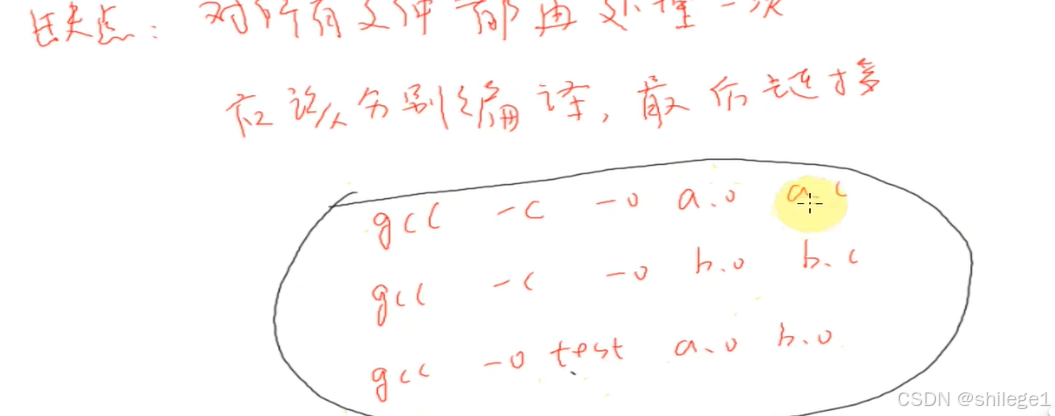 缺点：对所有文件都再处理一次
应该分别编译，最后链接
gcc -c -o a.o a.c
gcc -c -o b.o b.c
gcc -o test a.o b.o
CSDN @shilege1